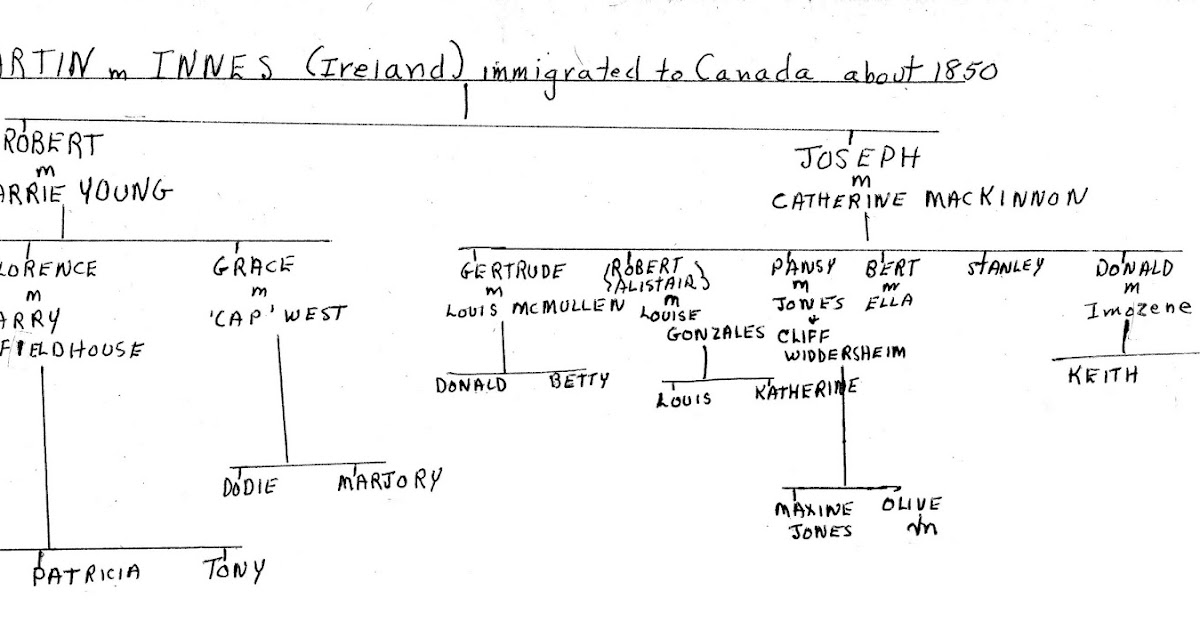 ARTIN m INNES (Ireland) immigrated to Canada about 1850
ROBERT
m
ARRIE YOUNG
JOSEPH
m
CATHERINE MACKINNON
LORENCE
m
ARRY
FIELDHOUSE
GRACE
m
'CAP' WEST
GERTRUDE
m
LOUIS MCMULLEN
(ROBERT
ALISTAIR)
m
LOUISE
GONZALES
PANSY
m
JONES
+
CLIFF
WIDDERSHEIM
BERT
m
ELLA
STANLEY
DONALD
m
Imozene
DONALD BETTY
LOUIS KATHERINE
KEITH
DODIE MARJORY
MAXINE
JONES
OLIVE
m
PATRICIA TONY